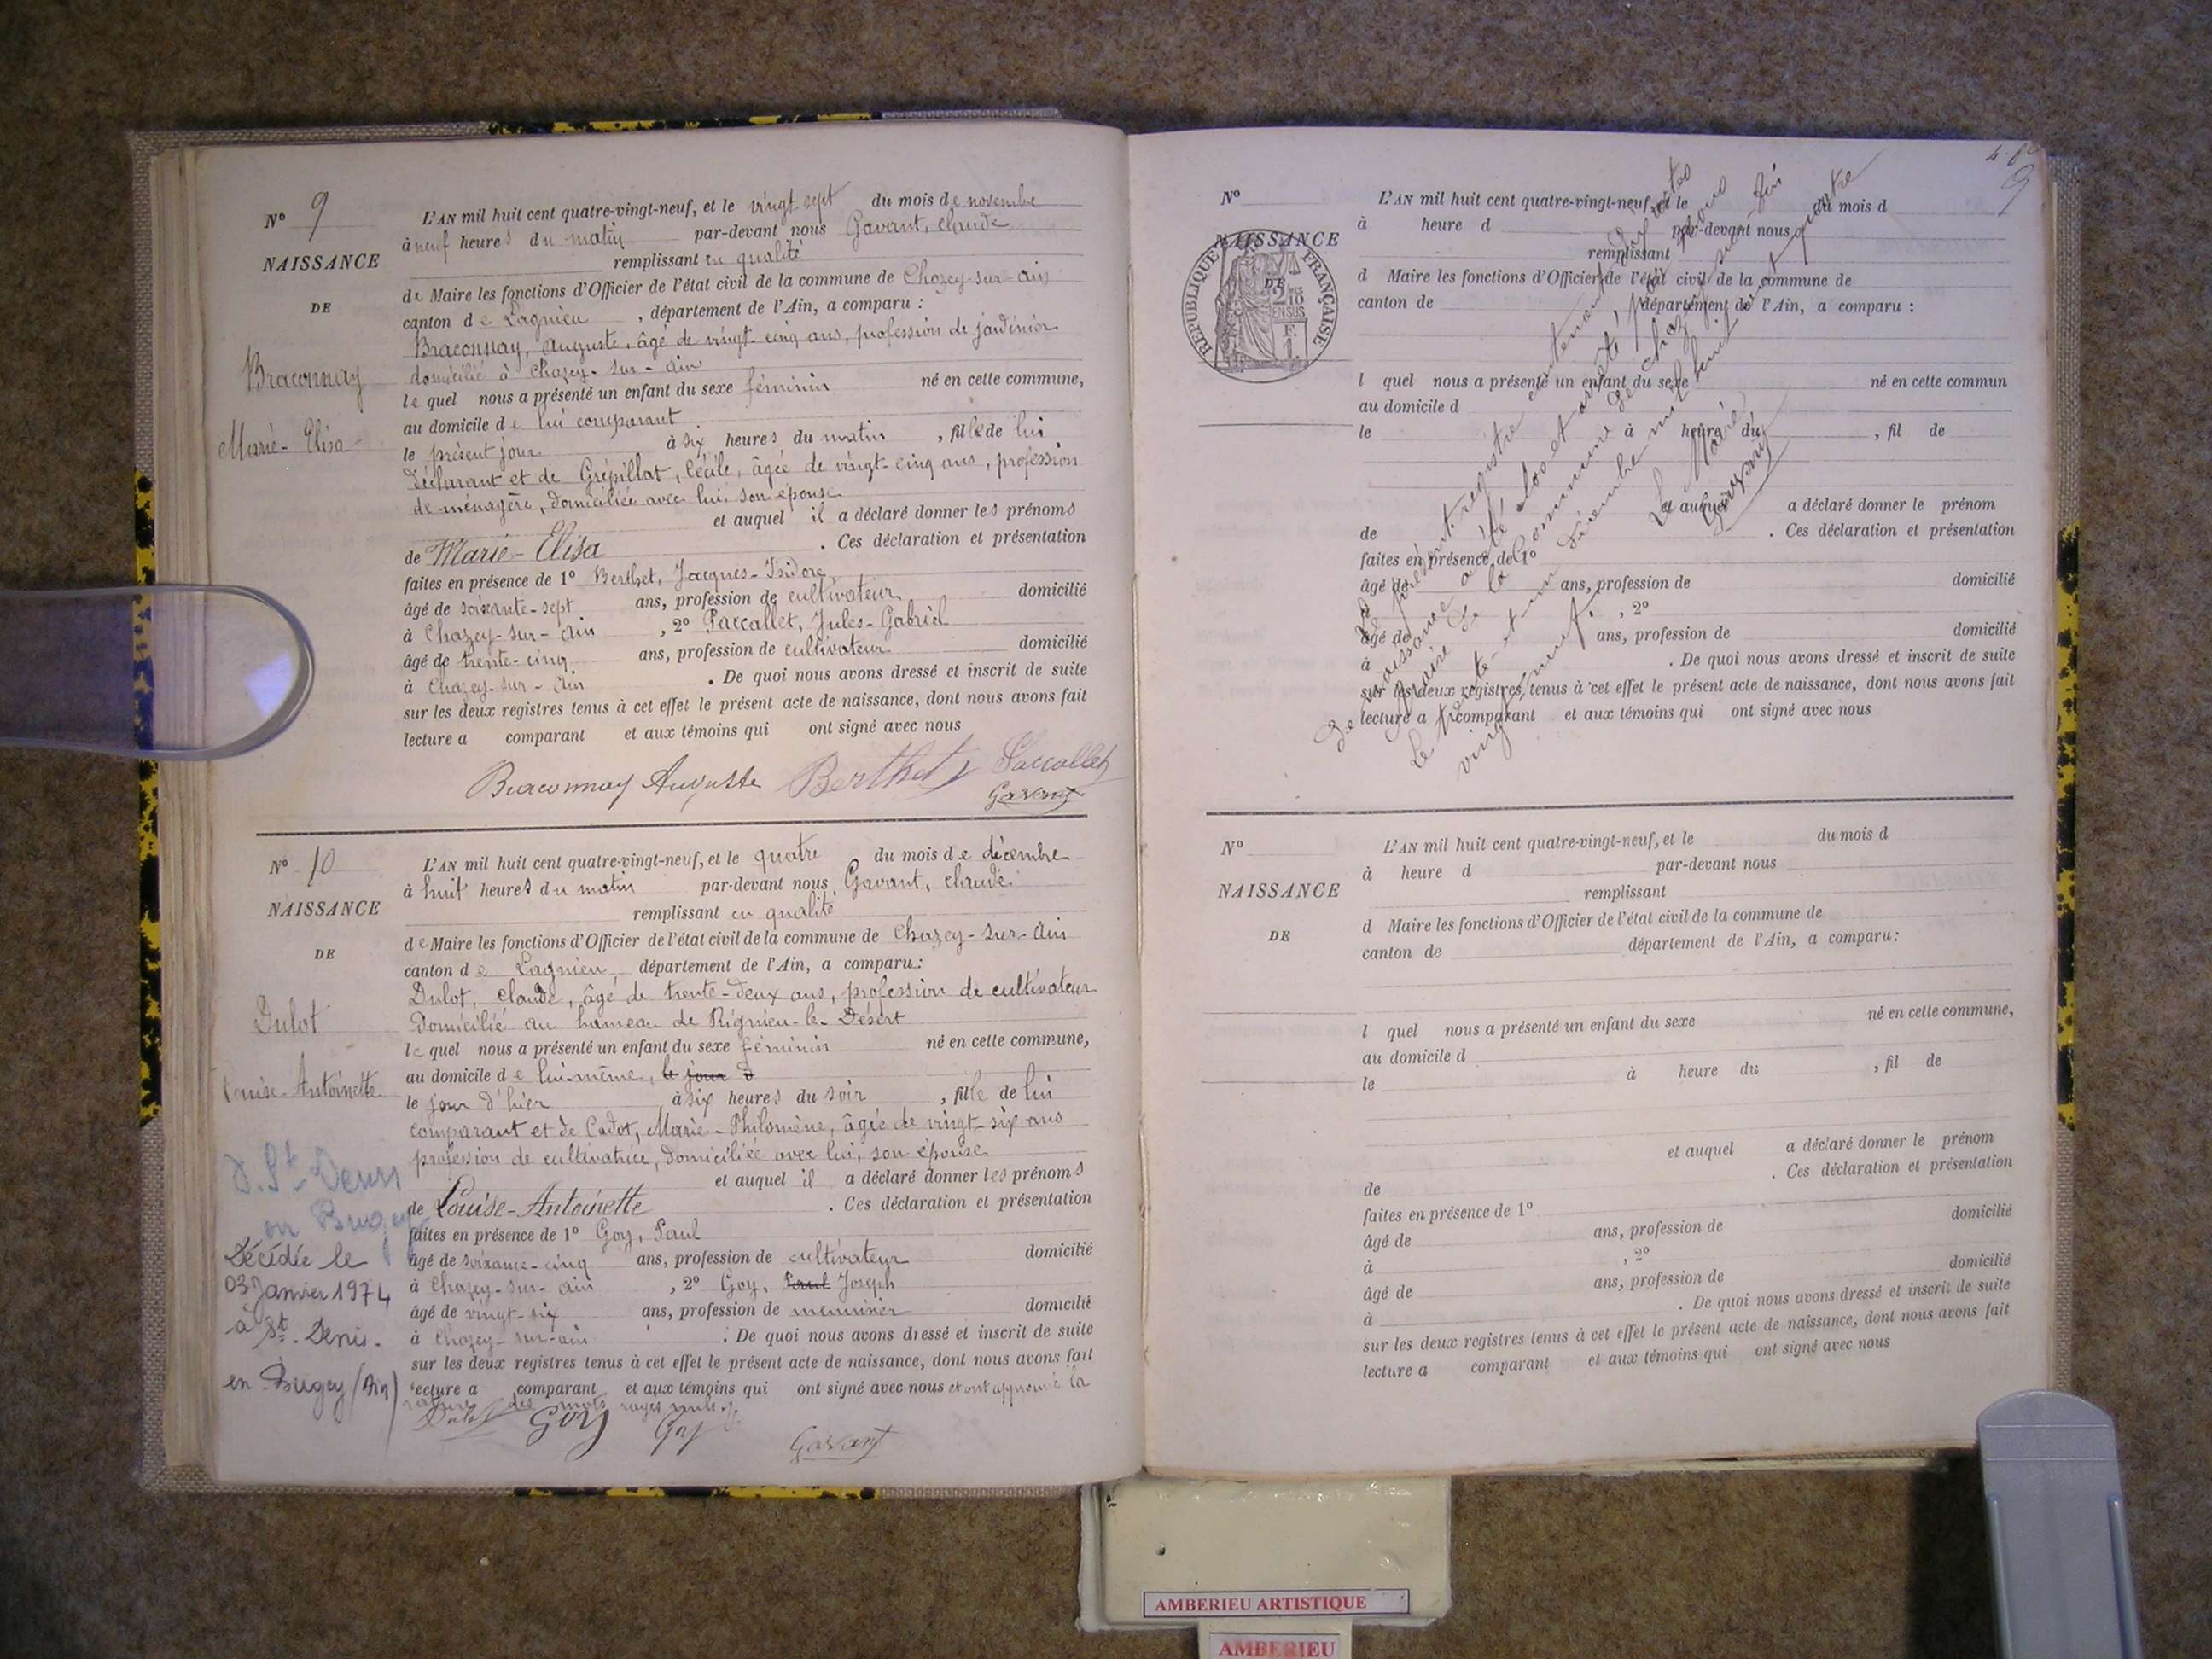 N° 9
NAISSANCE
DE
Braconnay
Marie-Elisa
L'AN mil huit cent quatre-vingt-neuf, et le vingt sept du mois de novembre
à neuf heures du matin par-devant nous Gavant, claude
remplissant en qualité
de Maire les fonctions d'Officier de l'état civil de la commune de Chazey-sur-ain
canton de Lagnieu, département de l'Ain, a comparu :
Braconnay, Auguste, âgé de vingt-cinq ans, profession de jardinier
domicilié à Chazey-sur-ain
lequel nous a présenté un enfant du sexe féminin né en cette commune,
au domicile de lui comparant
le présent jour à six heures du matin, fille de lui
déclarant et de Grépillat, Cécile, âgée de vingt-cinq ans, profession
de ménagère, domiciliée avec lui, son épouse
et auquel il a déclaré donner les prénoms
de Marie-Elisa. Ces déclaration et présentation
faites en présence de 1° Berthet, Jacques-Isidore
âgé de soixante-sept ans, profession de cultivateur domicilié
à Chazey-sur-ain, 2° Paccallet, Jules-Gabriel
âgé de trente-cinq ans, profession de cultivateur domicilié
à Chazey-sur-ain. De quoi nous avons dressé et inscrit de suite
sur les deux registres tenus à cet effet le présent acte de naissance, dont nous avons fait
lecture a comparant et aux témoins qui ont signé avec nous
Braconnay Auguste Berthet Paccallet
Gavant
N° 10
NAISSANCE
DE
Dulot
Louise-Antoinette
D. St-Denis
en Bugey
Décédée le
03 Janvier 1974
à St-Denis-
en-Bugey (Ain)
L'AN mil huit cent quatre-vingt-neuf, et le quatre du mois de décembre
à huit heures du matin par-devant nous, Gavant, claude
remplissant en qualité
de Maire les fonctions d'Officier de l'état civil de la commune de Chazey-sur-ain
canton de Lagnieu, département de l'Ain, a comparu :
Dulot, claude, âgé de trente-deux ans, profession de cultivateur
domicilié au hameau de Rignieu-le-Désert
lequel nous a présenté un enfant du sexe féminin né en cette commune,
au domicile de lui-même, le jour d
le jour d'hier à six heures du soir, fille de lui
comparant et de Cadot, Marie-Philomène, âgée de vingt-six ans
profession de cultivatrice, domiciliée avec lui, son épouse
et auquel il a déclaré donner les prénoms
de Louise-Antoinette. Ces déclaration et présentation
faites en présence de 1° Goy, Paul
âgé de soixante-cinq ans, profession de cultivateur domicilié
à Chazey-sur-ain, 2° Goy, Paul Joseph
âgé de vingt-six ans, profession de menuisier domicilié
à Chazey-sur-ain. De quoi nous avons dressé et inscrit de suite
sur les deux registres tenus à cet effet le présent acte de naissance, dont nous avons fait
lecture a comparant et aux témoins qui ont signé avec nous et ont approuvé la
rature des mots rayés nuls.
Dulot Goy Goy Gavant
9
N°
NAISSANCE
DE
RÉPUBLIQUE FRANÇAISE
L'AN mil huit cent quatre-vingt-neuf, et le du mois d
à heure d par-devant nous
remplissant
d Maire les fonctions d'Officier de l'état civil de la commune de
canton de département de l'Ain, a comparu :
l quel nous a présenté un enfant du sexe né en cette commun
au domicile d
le à heure du, fil de
et auquel a déclaré donner le prénom
de. Ces déclaration et présentation
faites en présence de 1°
âgé de ans, profession de domicilié
à, 2°
âgé de ans, profession de domicilié
à. De quoi nous avons dressé et inscrit de suite
sur les deux registres tenus à cet effet le présent acte de naissance, dont nous avons fait
lecture a comparant et aux témoins qui ont signé avec nous
Le présent registre contenant dix actes
de naissance a été clos et arrêté par nous
Maire de la Commune de Chazey-sur-Ain
le trente-et-un décembre mil huit cent quatre
vingt-neuf.
Le Maire,
Gavant
N°
NAISSANCE
DE
L'AN mil huit cent quatre-vingt-neuf, et le du mois d
à heure d par-devant nous
remplissant
d Maire les fonctions d'Officier de l'état civil de la commune de
canton de département de l'Ain, a comparu :
l quel nous a présenté un enfant du sexe né en cette commune,
au domicile d
le à heure du, fil de
et auquel a déclaré donner le prénom
de. Ces déclaration et présentation
faites en présence de 1°
âgé de ans, profession de domicilié
à, 2°
âgé de ans, profession de domicilié
à. De quoi nous avons dressé et inscrit de suite
sur les deux registres tenus à cet effet le présent acte de naissance, dont nous avons fait
lecture a comparant et aux témoins qui ont signé avec nous
AMBERIEU ARTISTIQUE
AMBERIEU